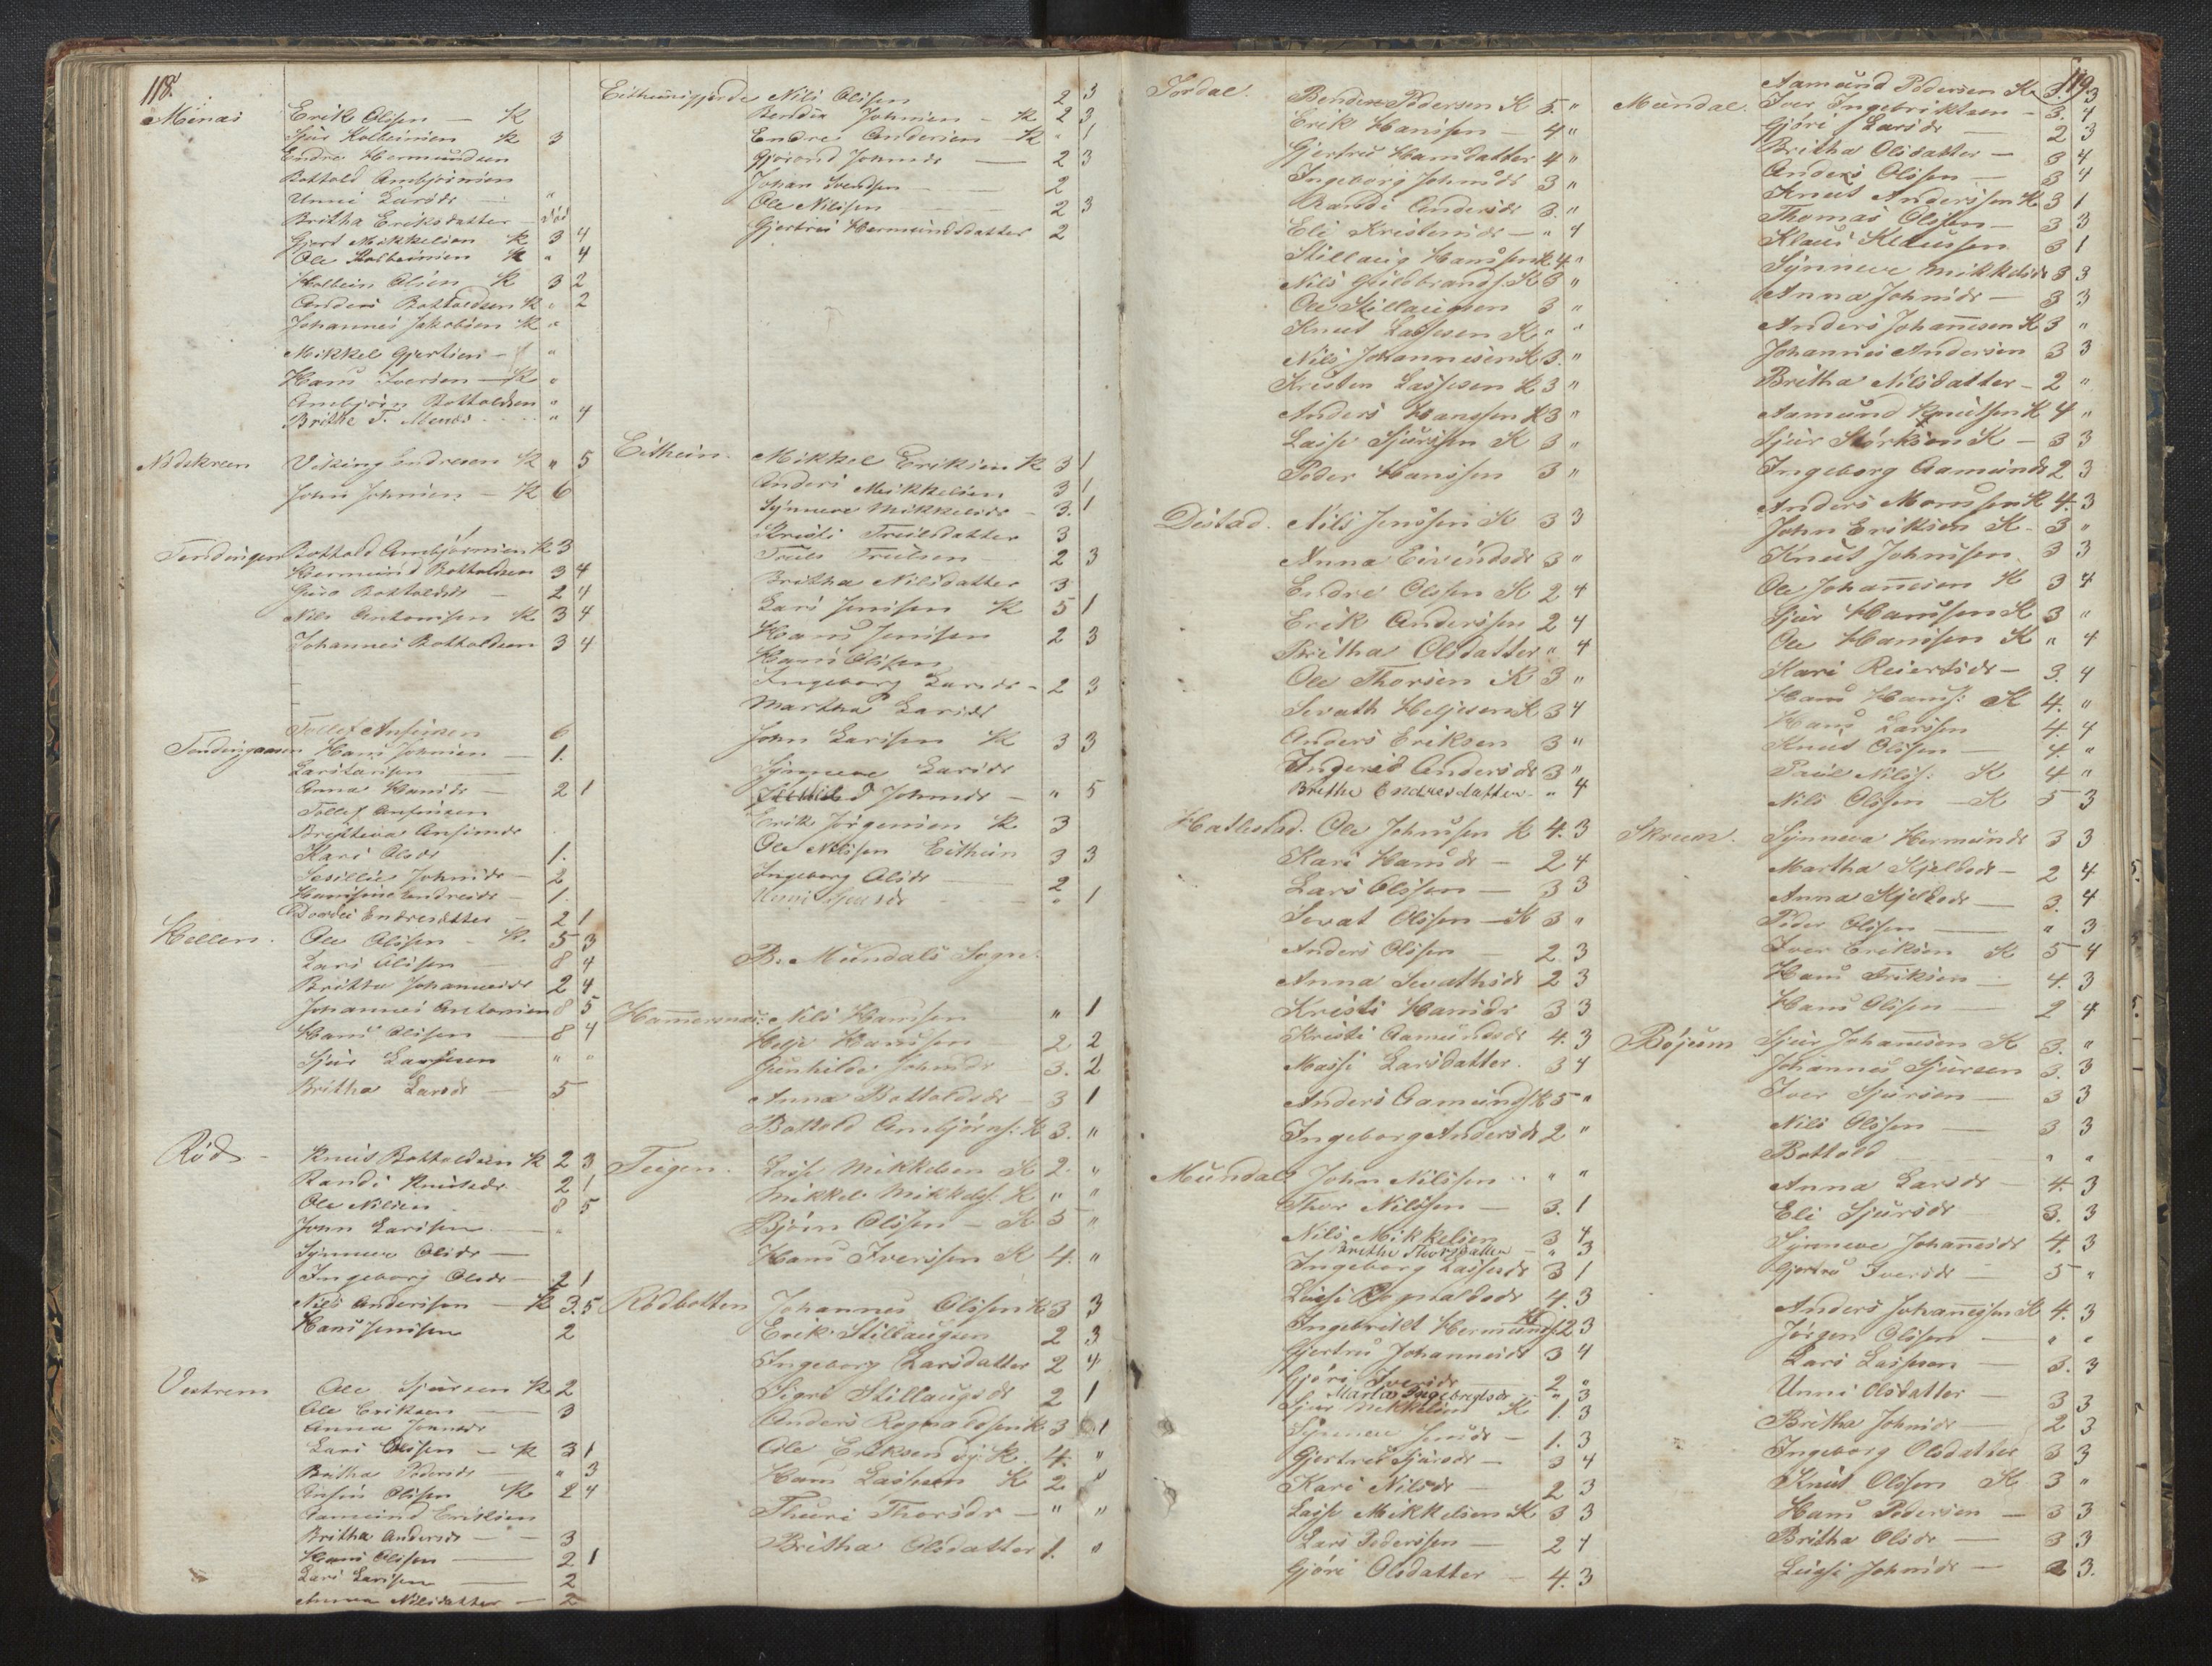 118.
Menæs Erik Olssen — K
Sjur Kolbeinsen K 3
Endre Hermundsen
Bottold Ambjørnsen
Unni Larsdr — "
Britha Eriksdatter — død
Gjert Mikkelsen K 3 4
Ole Kolbeinsen K " 4
Kolbein Olsen K 3 2
Anders Bottoldsen K " 2
Johannes Jakobsen K "
Mikkel Gjertsen — "
Hans Iversen — K "
Ambjørn Bottoldsen "
Brithe T. Menæs " 4
Nedskreen Viking Endresen K " 5
John Johnsen — K 6
Tendingen Bottold Ambjørnsen K 3
Hermund Bottoldsen 3 4
Bottoldsdr — 2 4
Nils Antonisen K 3 4
Johannes Bottoldsen 3 4
Tollef Ansinsen 6
Hans Johnsen — 1.
Lars Larssen —
Anna Hansdr — 2 1
Tollef Ansinsen
Ansinsdr
Kari Olsdr 1.
Johnsdr — 2
Endresdr — 1.
Endresdatter — 2 1
Hellen. Ole Olssen — K. 5 3
Lars Olssen — 8 4
Britha Johannesdr 2 4
Johannes Antonisen 8 5
Hans Olssen — 8 4
Sjur Lassesen " "
Britha Larsdr — 5
Rød — Knut Bottoldsen K 2 3
Randi Knutsdr 2 1
Ole Nilsen 8 5
John Larssen — "
Synneve Olsdr —
Ingeborg Olsdr — 2 1
Nils Anderssen — K 3. 5
Hans Jenssen 2
Vestrem Ole Sjursen K 2
Ole Eriksen — 3
Anna Johnsdr
Lars Olssen — K 3 1
Britha Pedersdr — " 3
Ansin Olssen K 2 4
Aamund Eriksen
Britha Andersdr — 3
Hans Olssen — 2 1
Lars Larssen — 2
Anna Nilsdatter — 2
Nils Olssen 2 3
Bendix Johnsen — K 2 3
Endre Andersen K " 1
Johnsdr — 2 3
Johan Svendsen — 2
Ole Nilssen 2 3
Gjertru Hermundsdatter 2
Eithun. Mikkel Eriksen K 3 1
Anders Mikkelsen 3 1
Synneve Mikkelsdr — 3. 1
Kristi Trulsdatter 3
Truls Trulsen 2 3
Britha Nilsdatter 3
Lars Jenssen K 5 1
Hans Jenssen 2 3
Hans Olssen
Ingeborg Larsdr — 2 3
Martha Larsdr
John Larssen K 3 3
Synneve Larsdr
Johnsdr — " 5
Erik Jørgensen K 3
Ole Nilssen Eithun 3 3
Ingeborg Olsdr — 2
Unni " 1
B. Mundals Sogn.
Hamersnæs: Nils Hanssen " 1
Helje Hanssen 2 2
Gunhilde Johnsdr 3. 2
Anna Bottoldsdr — 3 1
Bottold Ambjørns: K 3. "
Teigen. Lasse Mikkelsen K 2. "
Mikkel Mikkels: K " "
Bjørn Olssen — K 5 "
Hans Iverssen K 4. "
Rødbotten Johannes Olssen K 3 3
Erik Stillaugsen 2 3
Ingeborg Larsdatter 2 4
Sigri Stillaugsdr 2 1
Anders Rognaldssen K 3 1
Ole Eriksen K. 4. "
Hans Lassesen K 2 "
Thuri Thorsdr — " "
Britha Olsdatter 1. "
119.
Jordal. Bendix Pedersen K 5. "
Erik Hanssen — 4 "
Gjertru Hansdatter 4 "
Ingeborg Johnsdr 3 "
Randi Andersdr 3. "
Eli Kristensdr — " 4
Stillaug Hanssen K 4 "
Nils Guldbrands: K 3 "
Ole Stillaugsen 3 "
Knut Lassesen K " "
Nils Johannesen K 3. "
Kristen Lassesen K 3 "
Anders Hanssen K 3 "
Lasse Sjurssen K 3 "
Peder Hanssen 3 "
Distad. Nils Jenssen K 3 3
Anna Eivindsdr 3 "
Endre Olssen K 2 4
Erik Anderssen 2 4
Britha Olsdatter " 4
Ole Thorsen K 3 "
Sevath Heljesen K 3 4
Anders Eriksen 3 "
Ingerid Andersdr 3 "
Brithe Endresdatter " 4
Hatlestad. Ole Johnssen K 4. 3
Kari Hansdr — 2 4
Lars Olssen — 3 3
Sevat Olssen — K 3 "
Anders Olssen — 2. 3
Anna Sevathsdr 2 3
Kristi Hansdr 3 3
Kristi Aamundsdr 4. 3
Massi Larsdatter. 3 4
Anders Aamunds: K 5 "
Ingeborg Andersdr 2 "
Mundal John Nilssen " "
Thor Nilssen — 3. 1
Nils Mikkelsen 3 4
Brithe Thorsdatter — " 3
Ingeborg Lassesdr 3 1
Rognaldsdr 4. 3
Ingebrikt Hermunds: K 2 3
Gjertru Johannesdr 3 4
Gjøri Iversdr 2 "
Martha Ingebrigtsdr — " 3
Sjur Mikkelsen K 1. 3
Synneve Jensdr — 1. 3
Gjertru Sjursdr — 3 4
Kari Nilsdr — 2 3
Lasse Mikkelsen K 3 3
Lars Pederssen — 2 4
Gjøri Olsdatter — 4. 3
Aamund Pedersen K 3 3
Mundal. Iver Ingebriktsen — 3. 4
Gjøri Larsdr — 2 3
Britha Olsdatter — 3 4
Anders Olssen — 3 4
Knut Anderssen K 3 1
Thomas Olssen — 3 3
Klaus Klaussen 3 1
Synneve Mikkelsdr 3 3
Anna Johnsdr — 3 3
Anders Johanesen K 3 "
Johannes Andersen 3 3
Britha Nilsdatter — 2 "
Aamund Knutssen K 4 "
Sjur Størksen K — 3 3
Ingeborg Aamundsdr 2 3
Anders Monssen K 4. 3
John Eriksen K — 3 "
Knut Johnssen 3 3
Ole Johanesen K 3 4
Sjur Hanssen K 3 "
Ole Hanssen K " 4
Kari Reiertsdr — 3. 4
Hans Hans: K 4. "
Hans Larssen 4. 4
Knut Olssen — 4. "
Paul Nilss: K 4 "
Nils Olssen — K 5 3
Skreen. Synneva Hermundsdr 3 3
Martha Kjeldsdr — 2 4
Anna Kjeldsdr — 3. 4
Peder Olssen — " 3
Iver Eriksen K 5 4
Hans Eriksen — 4. 3
Hans Olssen — 2 4
Bøjum Sjur Johanesen K 3. "
Johannes Sjursen 3. 3
Iver Sjursen — 3 3
Nils Olssen — 3 3
Bottold " "
Anna Larsdr — 4. 3
Eli Sjursdr 3. 3
Synneve Johanesdr 4. 3
Gjertru Iversdr — 5 "
Anders Johanessen K 4. 3
Jørgen Olssen — " "
Lars Lassesen — 3. 3
Unni Olsdatter — 3 3
Britha Johnsdr — 2 3
Ingeborg Olsdatter 3 3
Knut Olssen K 3 "
Hans Pedersen — 3 3
Britha Olsdr — 3 3
Johnsdr — 3.